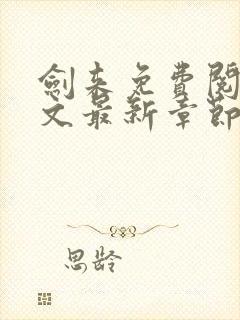 劍来免費閱
文最新章節
思齡